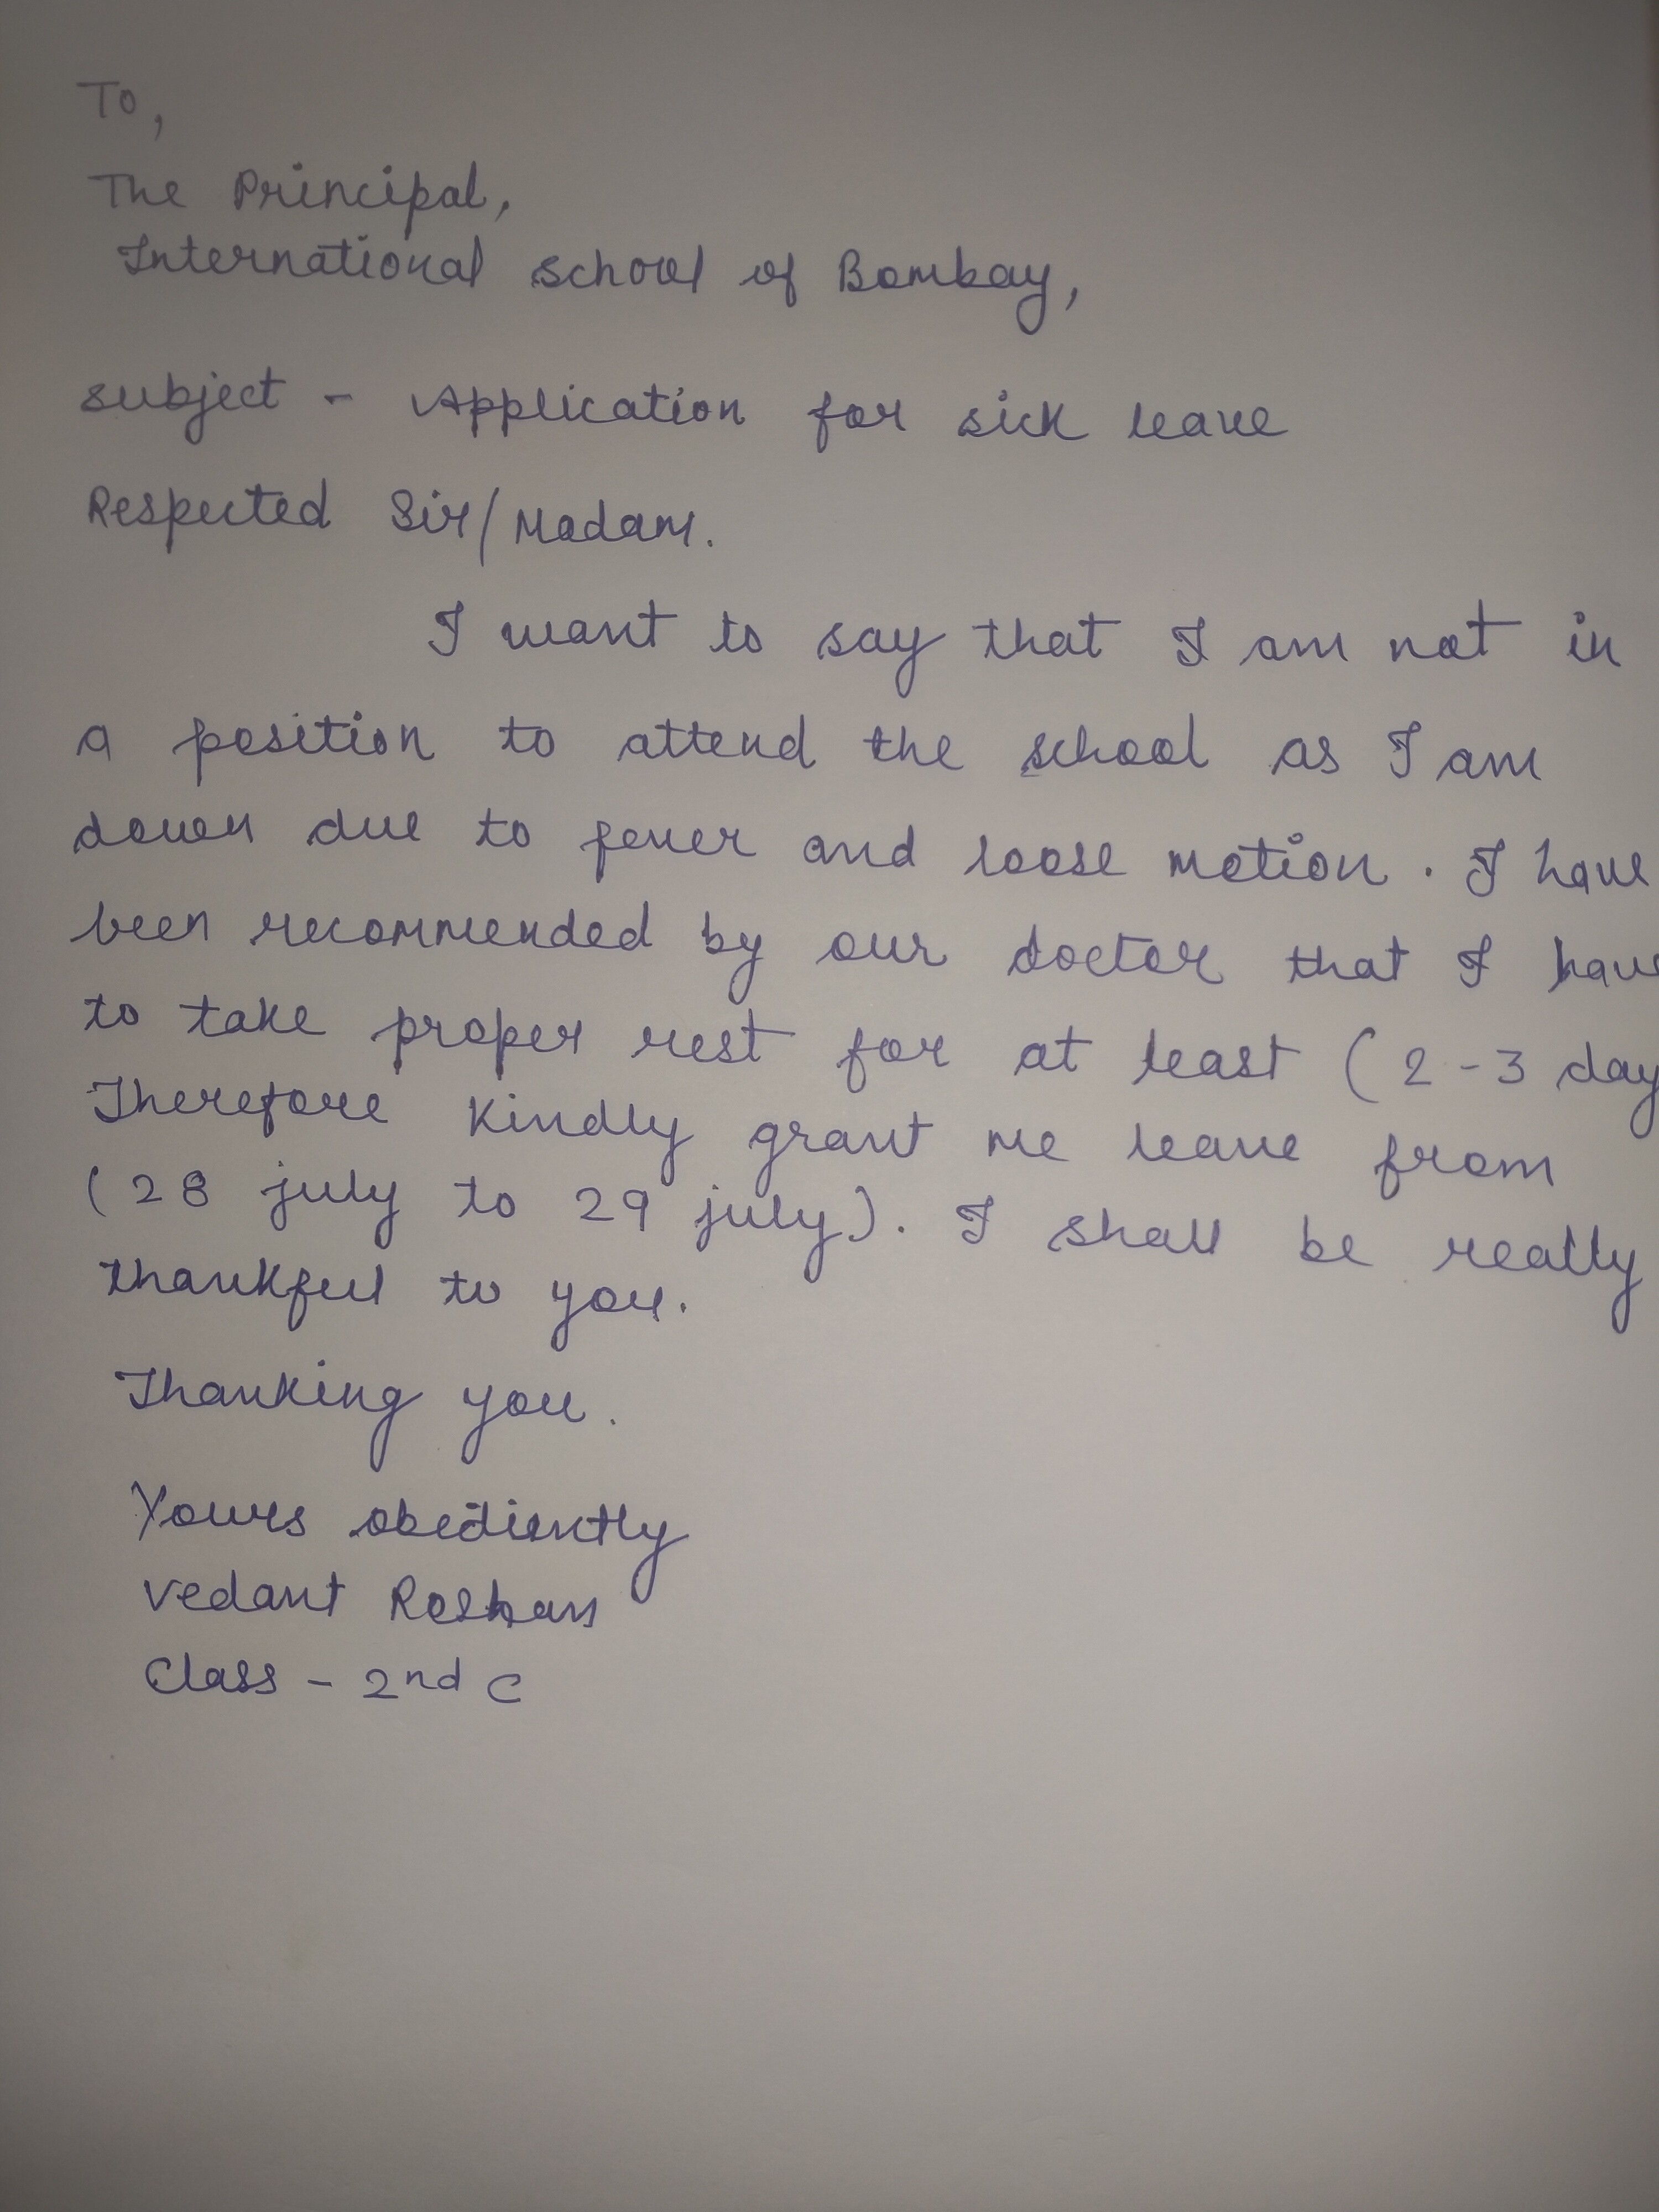 To,
The Principal,
International school of Bombay,
subject - Application for sick leave
Respected Sir/Madam.
I want to say that I am not in
a position to attend the school as I am
down due to fever and loose motion. I have
been recommended by our doctor that I have
to take proper rest for at least (2-3 day
Therefore kindly grant me leave from
(28 july to 29 july). I shall be really
thankful to you.
Thanking you.
Yours obediently
Vedant Roshan
Class - 2nd C